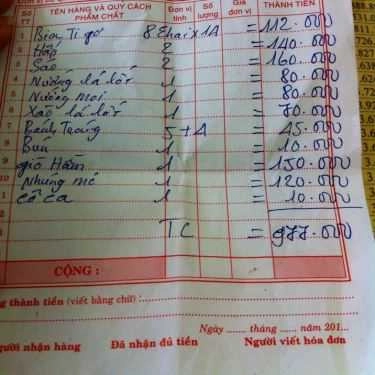 SỐ TT TÊN HÀNG VÀ QUY CÁCH PHẨM CHẤT Đơn vị tính Số lượng Giá đơn vị THÀNH TIỀN
1 Bia Ti gơ 8 Ehai x 1A = 112.000
2 Hấp 2 = 140.000
3 Sào 2 = 160.000
4 Nướng lá lốt 1 = 80.000
5 Nướng mọi 1 = 80.000
6 Xào lá lốt 1 = 70.000
7 Bánh Tráng 5 + A = 45.000
8 Bún 1 = 10.000
9 giò Hầm 1 = 150.000
10 Nhúng mẻ 1 = 120.000
1 cô ca 1 = 10.000
TC = 977.000
CỘNG :
thành tiền (viết bằng chữ) :
Ngày ...... tháng ...... năm 201...
người nhận hàng Đã nhận đủ tiền Người viết hóa đơn